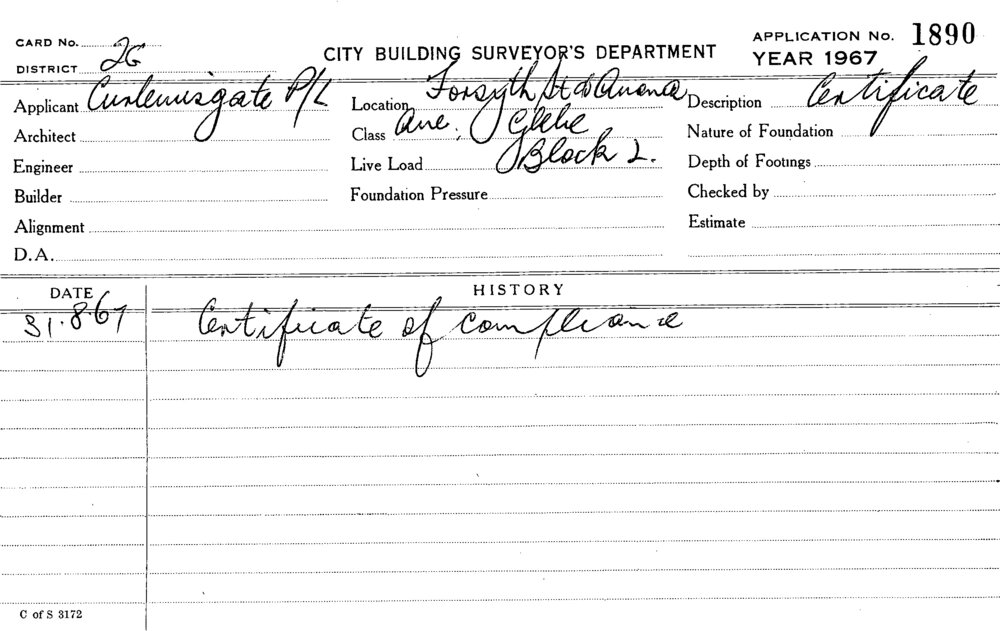 CARD No. 2G
DISTRICT
CITY BUILDING SURVEYOR'S DEPARTMENT
APPLICATION No. 1890
YEAR 1967
Applicant P/L
Location Forsyth St &
Description Certificate
Architect
Class Ave, Glebe
Nature of Foundation
Engineer
Live Load Block 2.
Depth of Footings
Builder
Foundation Pressure
Checked by
Alignment
Estimate
D.A.
DATE
HISTORY
31.8.67 Certificate of compliance
C of S 3172